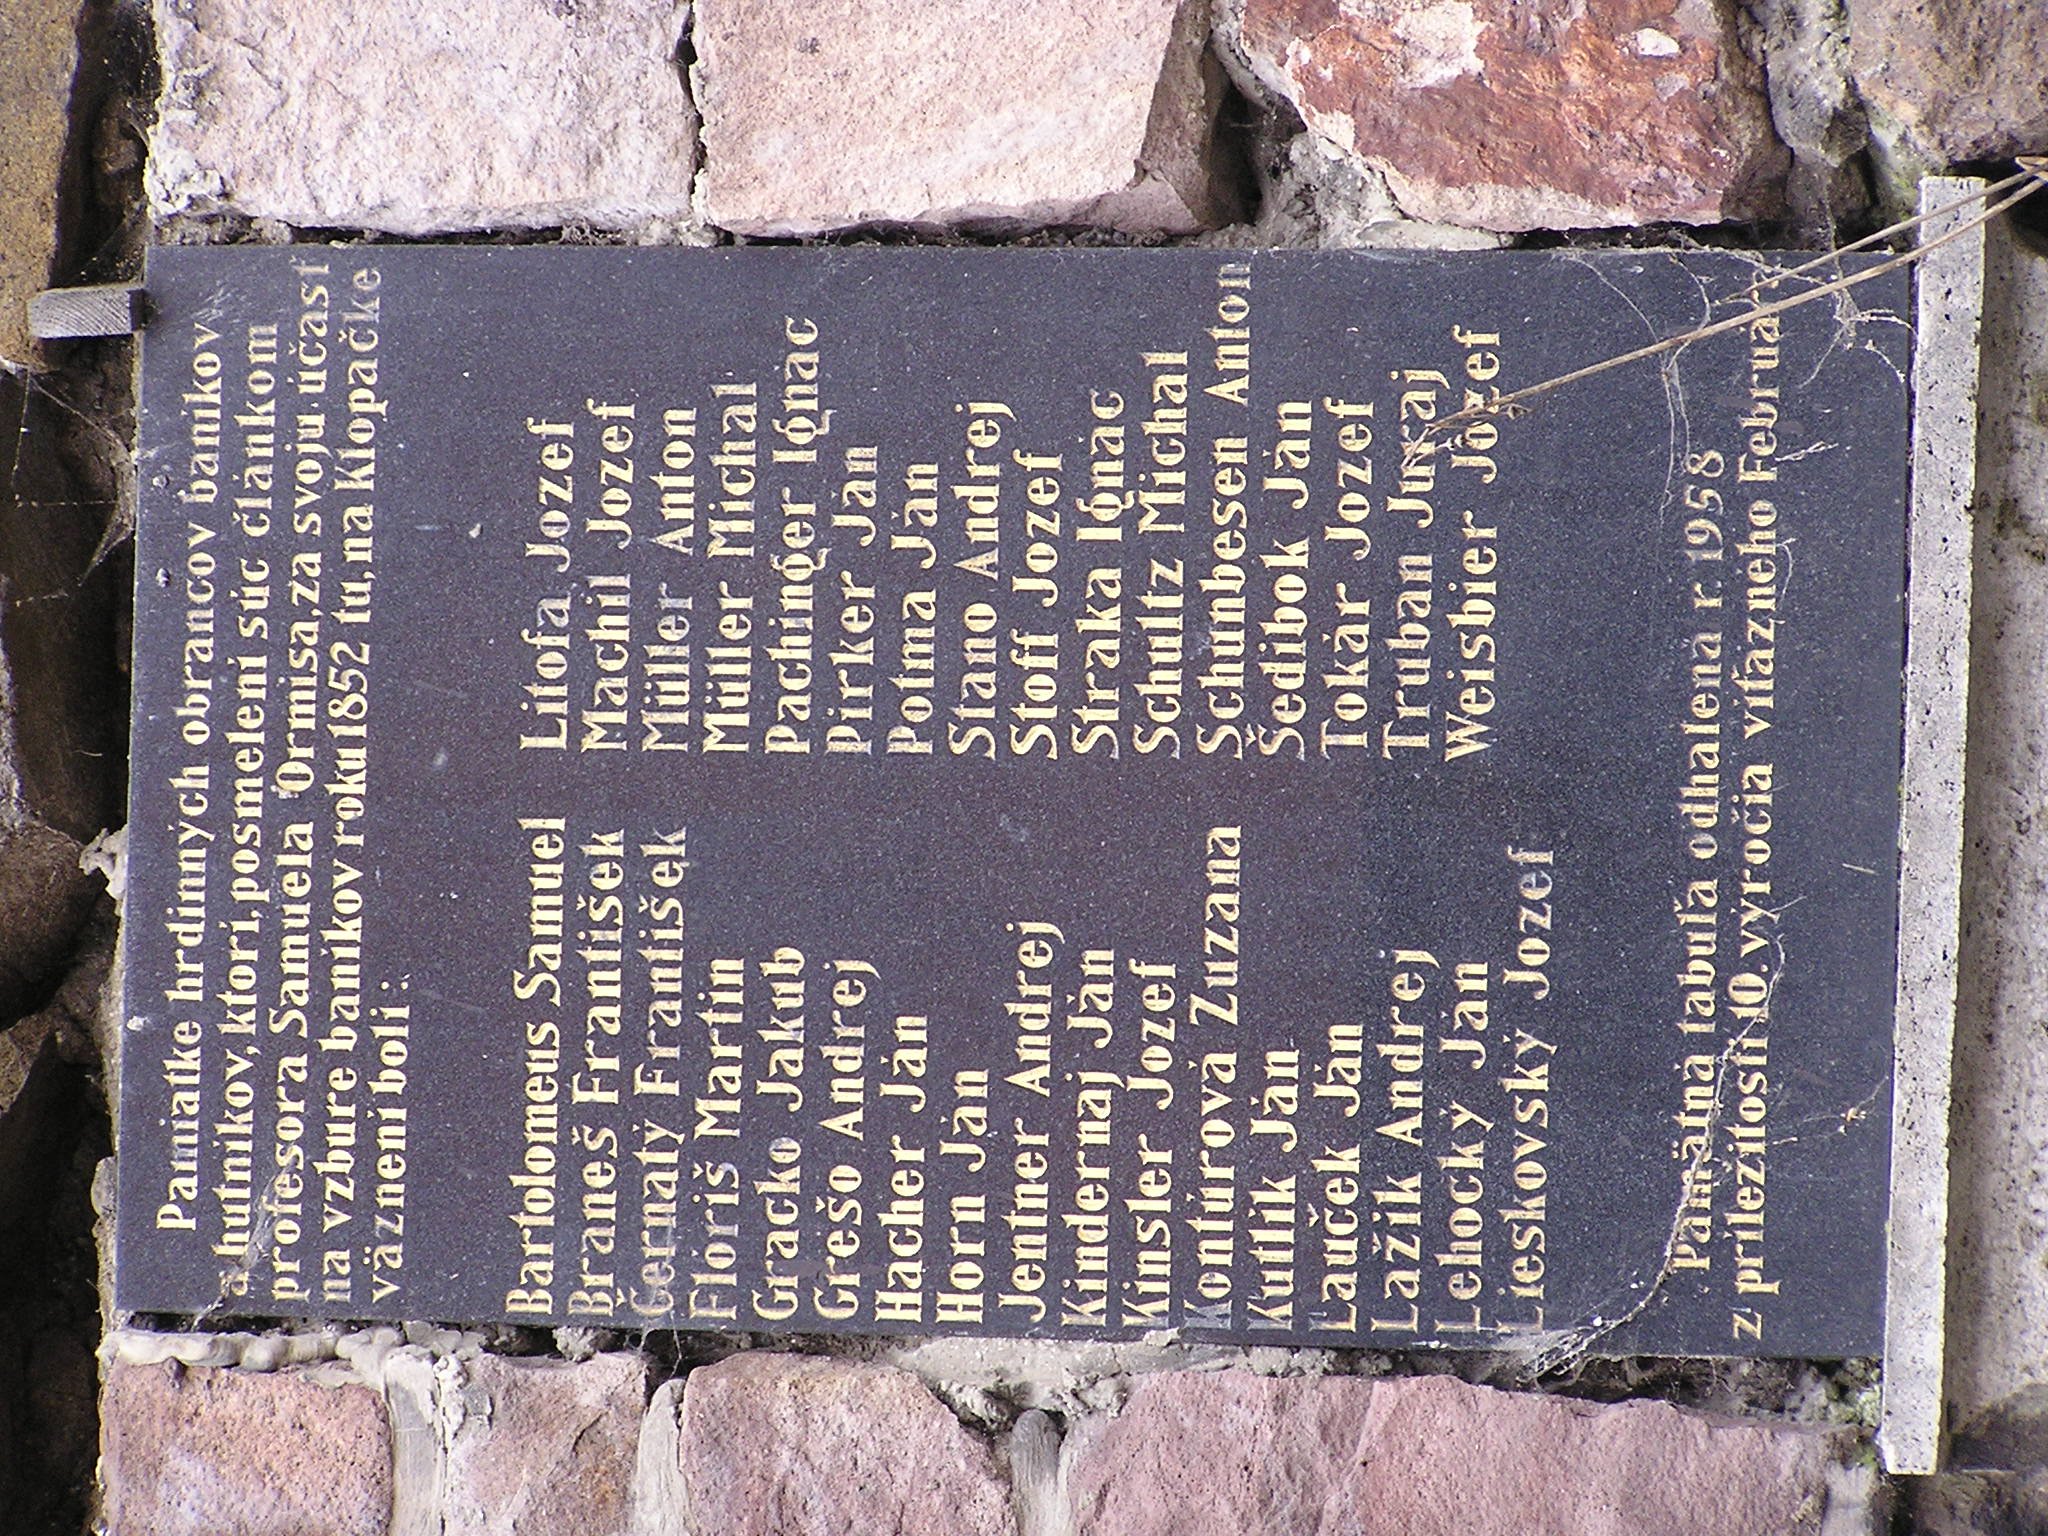 Pamiatke hrdinných obrancov baníkov
a hutníkov, ktorí, posmelení súc článkom
profesora Samuela Ormisa, za svoju účasť
na vzbure baníkov roku 1852 tu, na Klopačke
väznení boli:
Bartolomeus Samuel
Braneš František
Černatý František
Flóriš Martin
Gracko Jakub
Grešo Andrej
Hacher Ján
Horn Ján
Jentner Andrej
Kindernaj Ján
Kinsler Jozef
Kontúrová Zuzana
Kutlík Ján
Lauček Ján
Lažík Andrej
Lehocký Ján
Lieskovský Jozef
Litofa Jozef
Machil Jozef
Müller Anton
Müller Michal
Pachinger Ignac
Pirker Ján
Potma Ján
Stano Andrej
Stoff Jozef
Straka Ignac
Schultz Michal
Schunbesen Anton
Šedibok Ján
Tokár Jozef
Truban Juraj
Weisbier Jozef
Pamätná tabuľa odhalená r. 1958
z príležitosti 10. výročia víťazného Februára